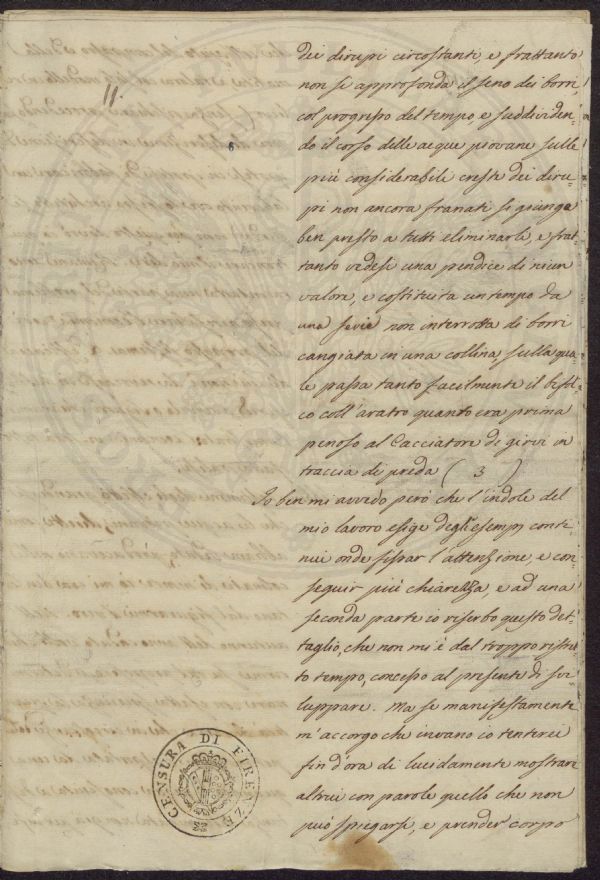 11.
dei dirupi circostanti, e frattanto
non se approfonda il seno dei borri,
col progresso del tempo, e suddividen-
do il corso delle acque piovane sulle
più considerabili creste dei diru-
pi non ancora franati si giunge
ben presto a tutti eliminarli, e frat-
tanto vedesi una pendice di niun
valore, e costituita un tempo da
una serie non interrotta di borri
cangiata in una collina, sulla qua
le passa tanto facilmente il bifol-
co coll'aratro quanto era prima
penoso al Cacciatore di girvi in
traccia di preda ( 3 )
Io ben mi avvedo però che l'indole del
mio lavoro esige degli esempj conti-
nui onde fissar l'attenzione, e con-
seguir più chiarezza, e ad una
seconda parte io riserbo questo det-
taglio, che non mi è dal troppo ristret-
to tempo, concesso al presente di svi-
luppare. Ma se manifestamente
m'accorgo che invano io tenterei
fin d'ora di lucidamente mostrare
altrui con parole quello che non
può spiegarsi, e prender corpo
CENSURA DI FIRENZE